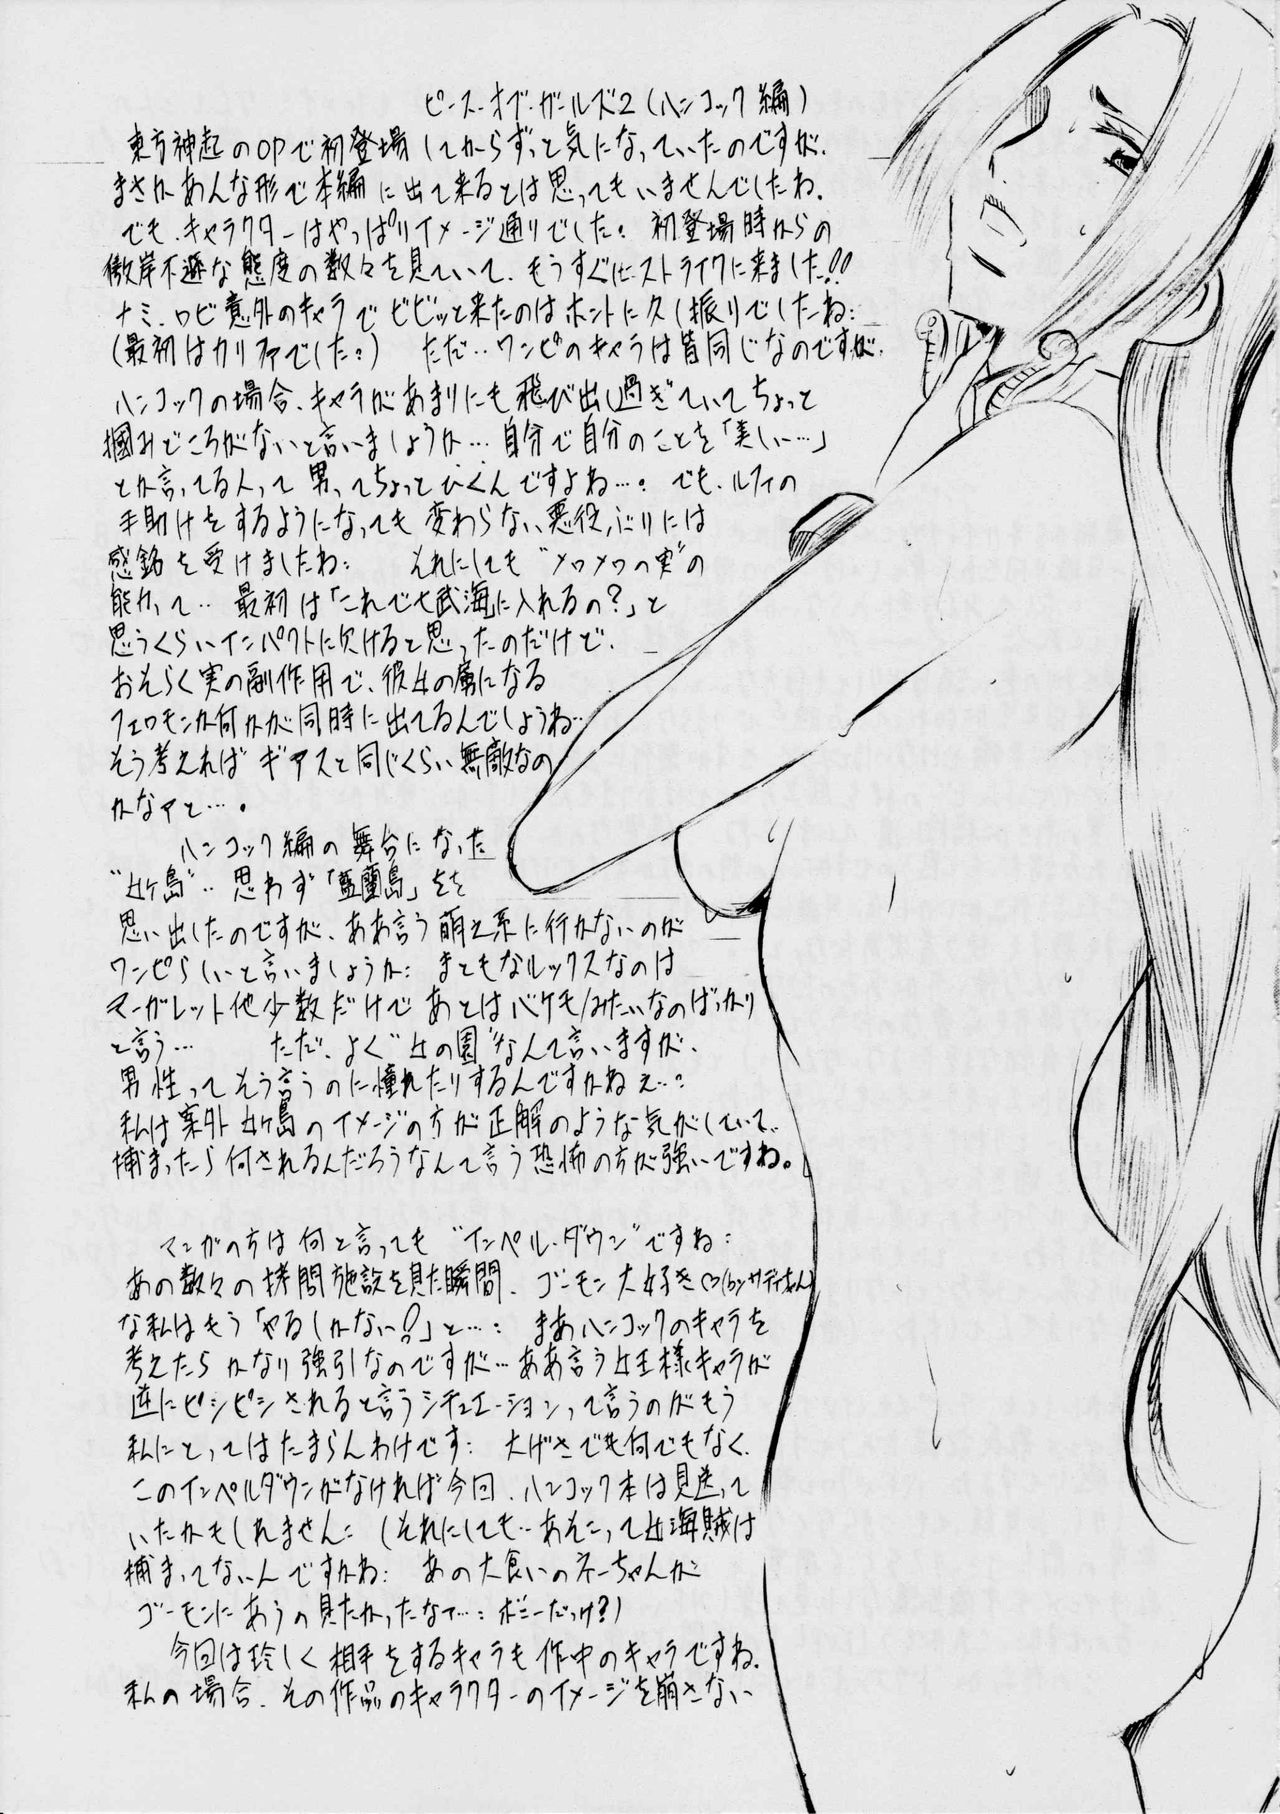 ピース・オブ・ガールズ2(ハンコック編)
東方神起のOPで初登場してからずっと気になっていたのですが、
まさかあんな形で本編に出て来るとは思ってもいませんでしたね。
でも、キャラクターはやっぱりイメージ通りでした。初登場時からの
傲岸不遜な態度の数々を見ていて、もうすぐにストライクに来ました!!
ナミ、ロビ意外のキャラでビビッと来たのはホントに久し振りでしたね:
(最初はカリファでした:) ただ‥ワンピのキャラは皆同じなのですが、
ハンコックの場合、キャラがあまりにも飛び出し過ぎていてちょっと
掴みどころがないと言いましょうか…自分で自分のことを「美しい…」
とか言ってる人って男ってちょっとひくんですよね…。でも、ルフィの
手助けをするようになっても変わらない悪役ぶりには
感銘を受けましたね: それにしても"メロメロの実"の
能力って‥最初は「これで七武海に入れるの?」と
思うくらいインパクトに欠けると思ったのだけど、
おそらく実の副作用で、彼女の虜になる
フェロモンか何かが同時に出てるんでしょうね…
そう考えればギアスと同じくらい無敵なの
かなァと…。
ハンコック編の舞台になった
"女ヶ島"‥思わず「藍蘭島」をを
思い出したのですが、ああ言う萌え系に行かないのが
ワンピらしいと言いましょうか: まともなルックスなのは
マーガレット他少数だけであとはバケモノみたいなのばっかり
と言う… ただ、よく"女の園"なんて言いますが、
男性ってそう言うのに憧れたりするんですかねぇ…:
私は案外女ヶ島のイメージの方が正解のような気がしていて、
捕まったら何されるんだろうなんて言う恐怖の方が強いですね。
マンガの方は何と言っても"インペル・ダウン"ですね:
あの数々の拷問施設を見た瞬間、ゴーモン大好き♡(byサディちゃん)
な私はもう「やるしかない!」と…: まあハンコックのキャラを
考えたらかなり強引なのですが…ああ言う女王様キャラが
逆にピシピシされると言うシチュエーションって言うのがもう
私にとってはたまらんわけです: 大げさでも何でもなく、
このインペルダウンがなければ今回、ハンコック本は見送って
いたかもしれません: (それにしても‥あそこって女海賊は
捕まってないんですかね: あの大食いのネーちゃんが
ゴーモンにあうの見たかったなァ…: ボニーだっけ?)
今回は珍しく相手をするキャラも作中のキャラですね、
私の場合、その作品のキャラクターのイメージを崩さない